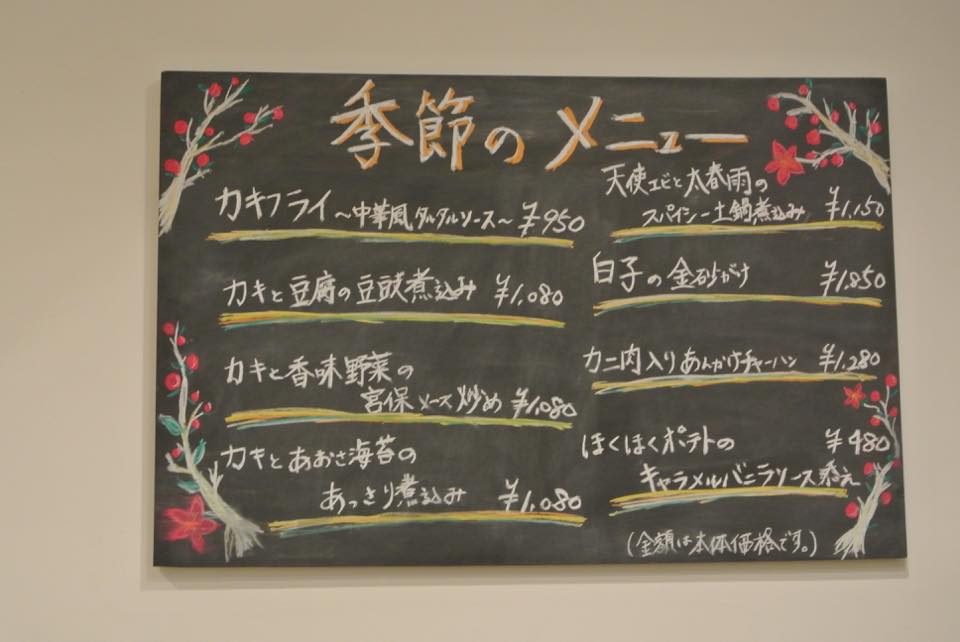 季節のメニュー
カキフライ 〜中華風タルタルソース〜 ¥950
カキと豆腐の豆豉煮込み ¥1,080
カキと香味野菜の
宮保ソース炒め ¥1,080
カキとあおさ海苔の
あっさり煮込み ¥1,080
天使エビと太春雨の
スパイシー土鍋煮込み ¥1,150
白子の金砂がけ ¥1,850
カニ肉入りあんかけチャーハン ¥1,280
ほくほくポテトの ¥480
キャラメルバニラソース添え
(金額は本体価格です。)